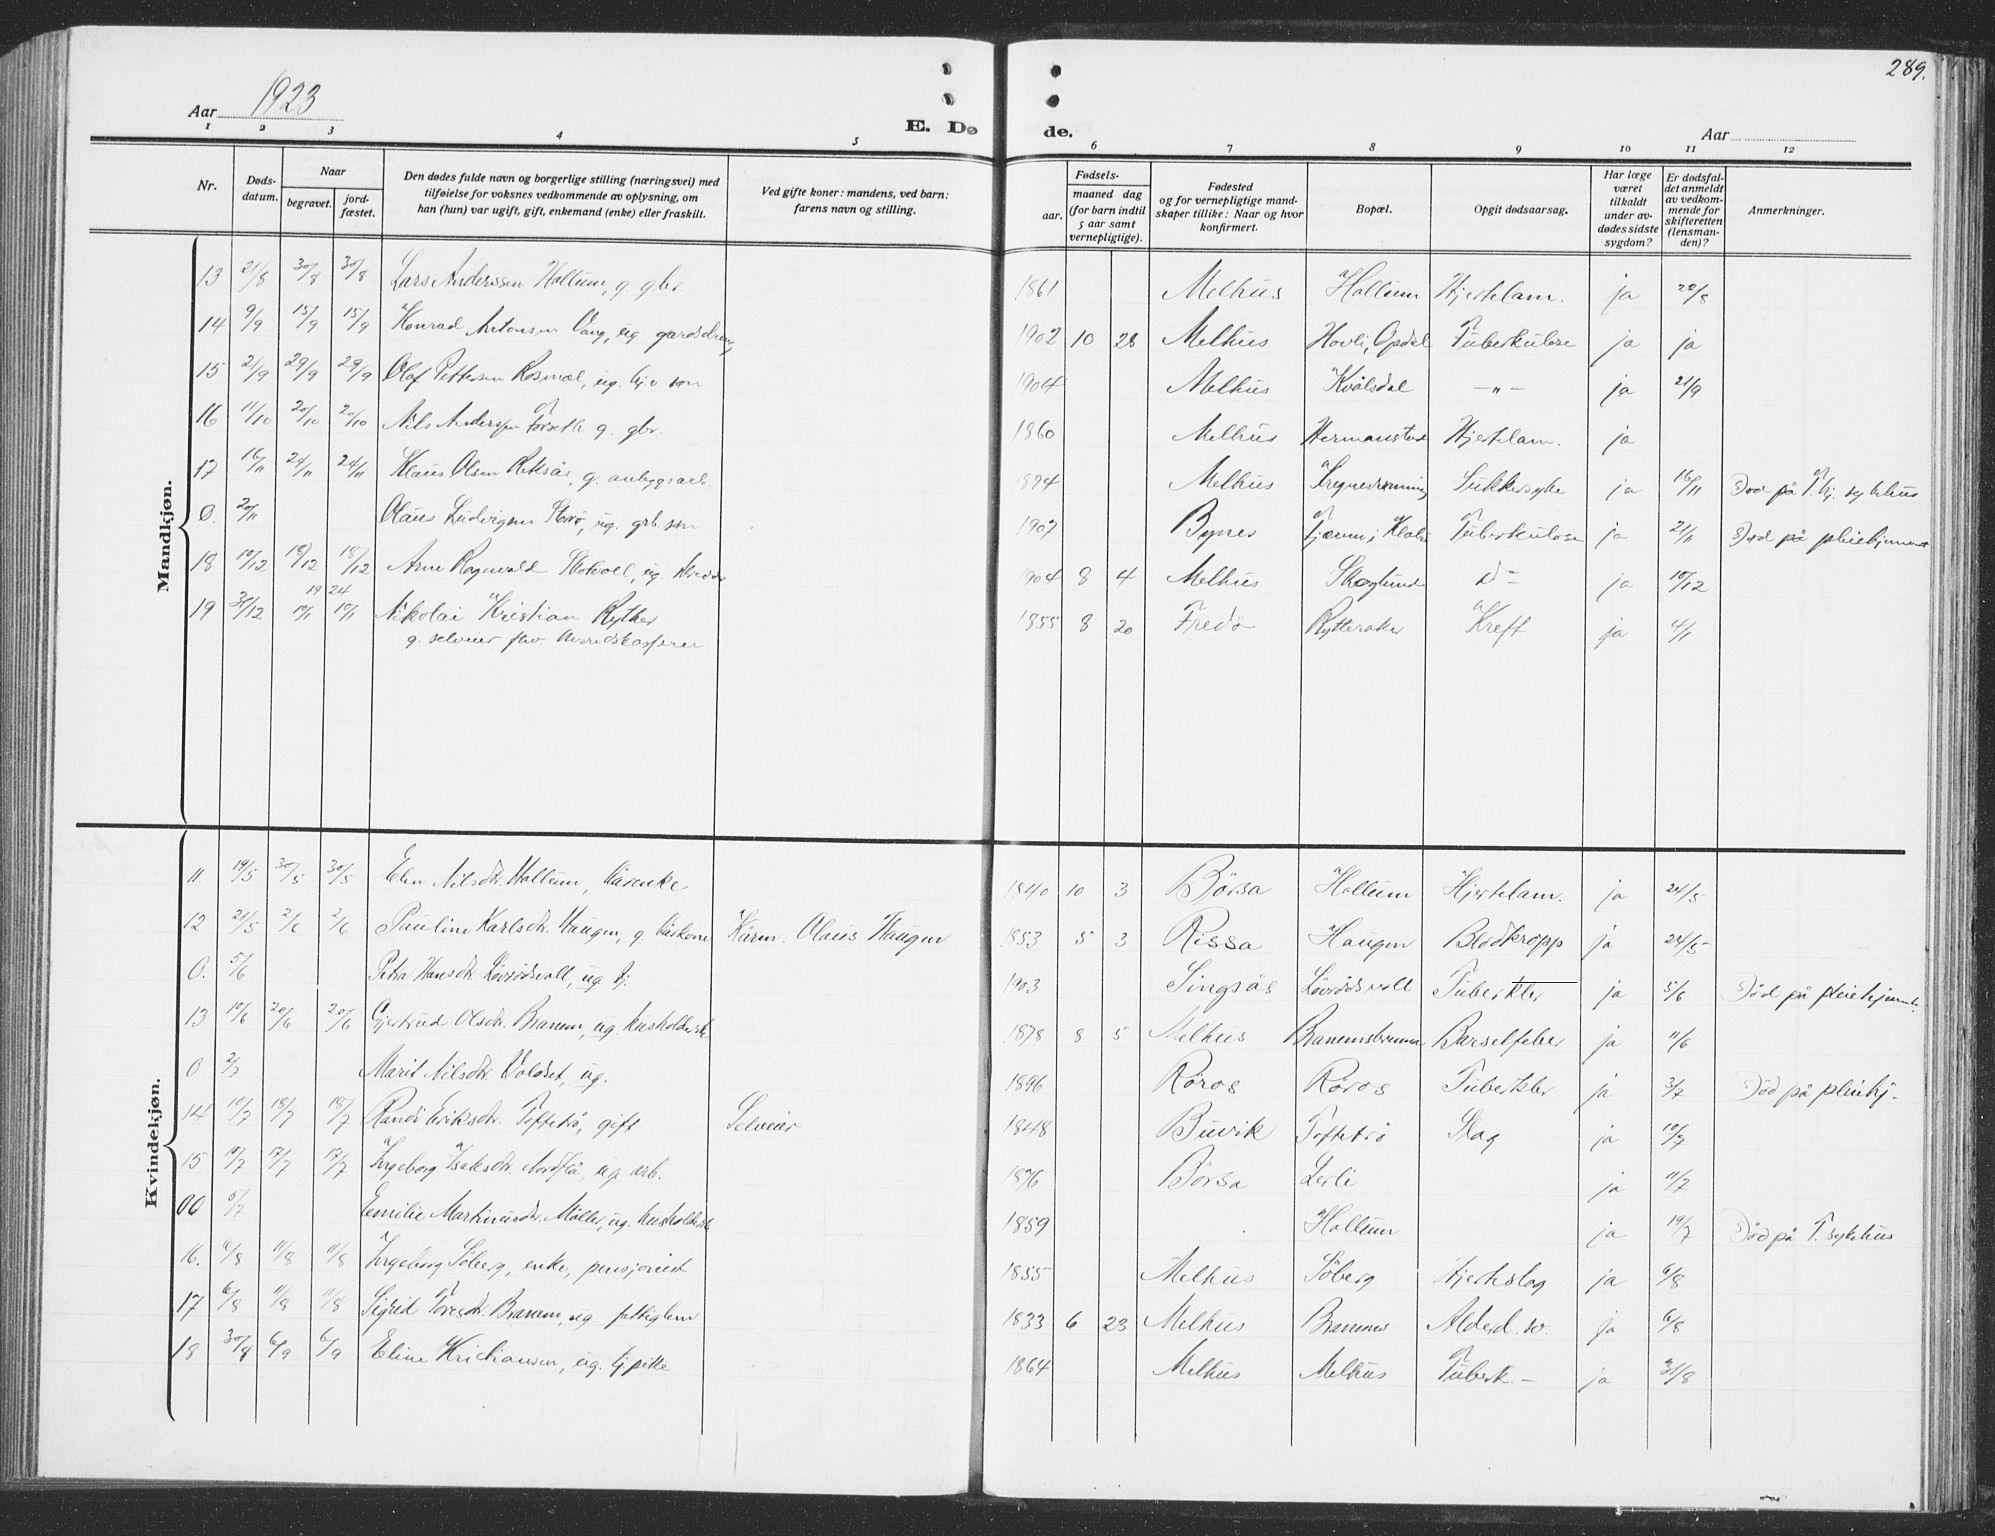 289.
Aar 1923
E. Dø de.
Aar
1 2 3 4 5 6 7 8 9 10 11 12
Nr.
Døds-
datum.
Naar
begravet.
jord-
fæstet.
Den dødes fulde navn og borgerlige stilling (næringsvei) med
tilføielse for voksnes vedkommende av oplysning, om
han (hun) var ugift, gift, enkemand (enke) eller fraskilt.
Ved gifte koner: mandens, ved barn:
farens navn og stilling.
Fødsels-
aar.
maaned dag
(for barn indtil
5 aar samt
vernepligtige).
Fødested
og for vernepligtige mand-
skaper tillike: Naar og hvor
konfirmert.
Bopæl.
Opgit dødsaarsag.
Har læge
været
tilkaldt
under av-
dødes sidste
sygdom?
Er dødsfal-
det anmeldt
av vedkom-
mende for
skifteretten
(lensman-
den)?
Anmerkninger.
Mandkjøn.
13 21/8 30/8 30/8 Lars Anderssen Hollum, g. gbr. 1861 Melhus Hollum Hjertelam. ja 22/8
14 9/9 15/9 15/9 Konrad Antonsen Vang, ug. gardsdreng 1902 10 28 Melhus Hovli, Opdal Tuberkulose ja ja
15 21/9 29/9 29/9 Olaf Pettersen Rosmæl, ug. son 1904 Melhus Kvålsdal -"- ja 21/9
16 11/10 20/10 20/10 Nils Anderssen Forseth g. gbr. 1860 Melhus Hermanstad Hjertelam. ja
17 16/11 24/11 24/11 Klaus Olsen g. anleggsarb. 1894 Melhus Sukkersyke ja 16/11 Død på T.hj. sykehus
0. 20/11 Olaus Ludvigsen ug. grb. søn 1907 Bynes Tuberkulose ja 21/11 Død på pleiehjemmet
18 10/12 18/12 18/12 Arne Ragnvald ug. 1904 8 4 Melhus Skoglund d- ja 10/12
1924
19 31/12 10/1 10/1 Nikolai Kristian Rytter 1855 8 20 Fredø Rytteraker Kreft ja 4/1
g. selveier fhv.
Kvindekjøn.
11. 19/5 30/5 30/5 Elen Nilsdtr. Hollum, kårenke 1840 10 3 Børsa Hollum Hjertelam. ja 24/5
12 21/5 2/6 2/6 Pauline Karlsdtr. Haugen, g. kårkone Kårm. Olaus Haugen 1853 5 3 Rissa Haugen Blodkropp ja 24/5
0. 5/6 Petra Hansdtr. Løvrødsvoll, ug. tj. 1903 Singsås Løvrødsvoll Tuberkler ja 5/6 Død på pleiehjemmet.
13 10/6 20/6 20/6 Gjertrud Olsdtr. Branem, ug. husholderske 1878 8 5 Melhus Barselfeber ja 11/6
0 2/7 Marit Nilsdtr. Voldset, ug. 1896 Røros Røros Tuberkler ja 3/7 Død på pleiehj.
14 10/7 18/7 18/7 Randi Eriksdtr. Toftetrø, gift Selveier 1848 Buvik Toftetrø Slag ja 10/7
15 10/7 17/7 17/7 Ingeborg Isaksdtr. Nordflå, ug. arb. 1876 Børsa Lerli ja 11/7
00 5/7 Emilie Martinusdtr. Møller, ug. husholderske 1859 Hollum ja 19/7 Død på T. sykehus
16. 6/8 11/8 11/8 Ingeborg Søberg, enke, pensjonist 1855 Melhus Søberg Hjerteslag ja 6/8
17 6/8 11/8 11/8 Sigrid Toresdtr. Branem, ug. fattiglem 1833 6 23 Melhus Alderd. sv. ja 6/8
18 30/8 6/9 6/9 Eline Kristiansen, ug. tj.pike 1864 Melhus Melhus Tuberk.- ja 31/8